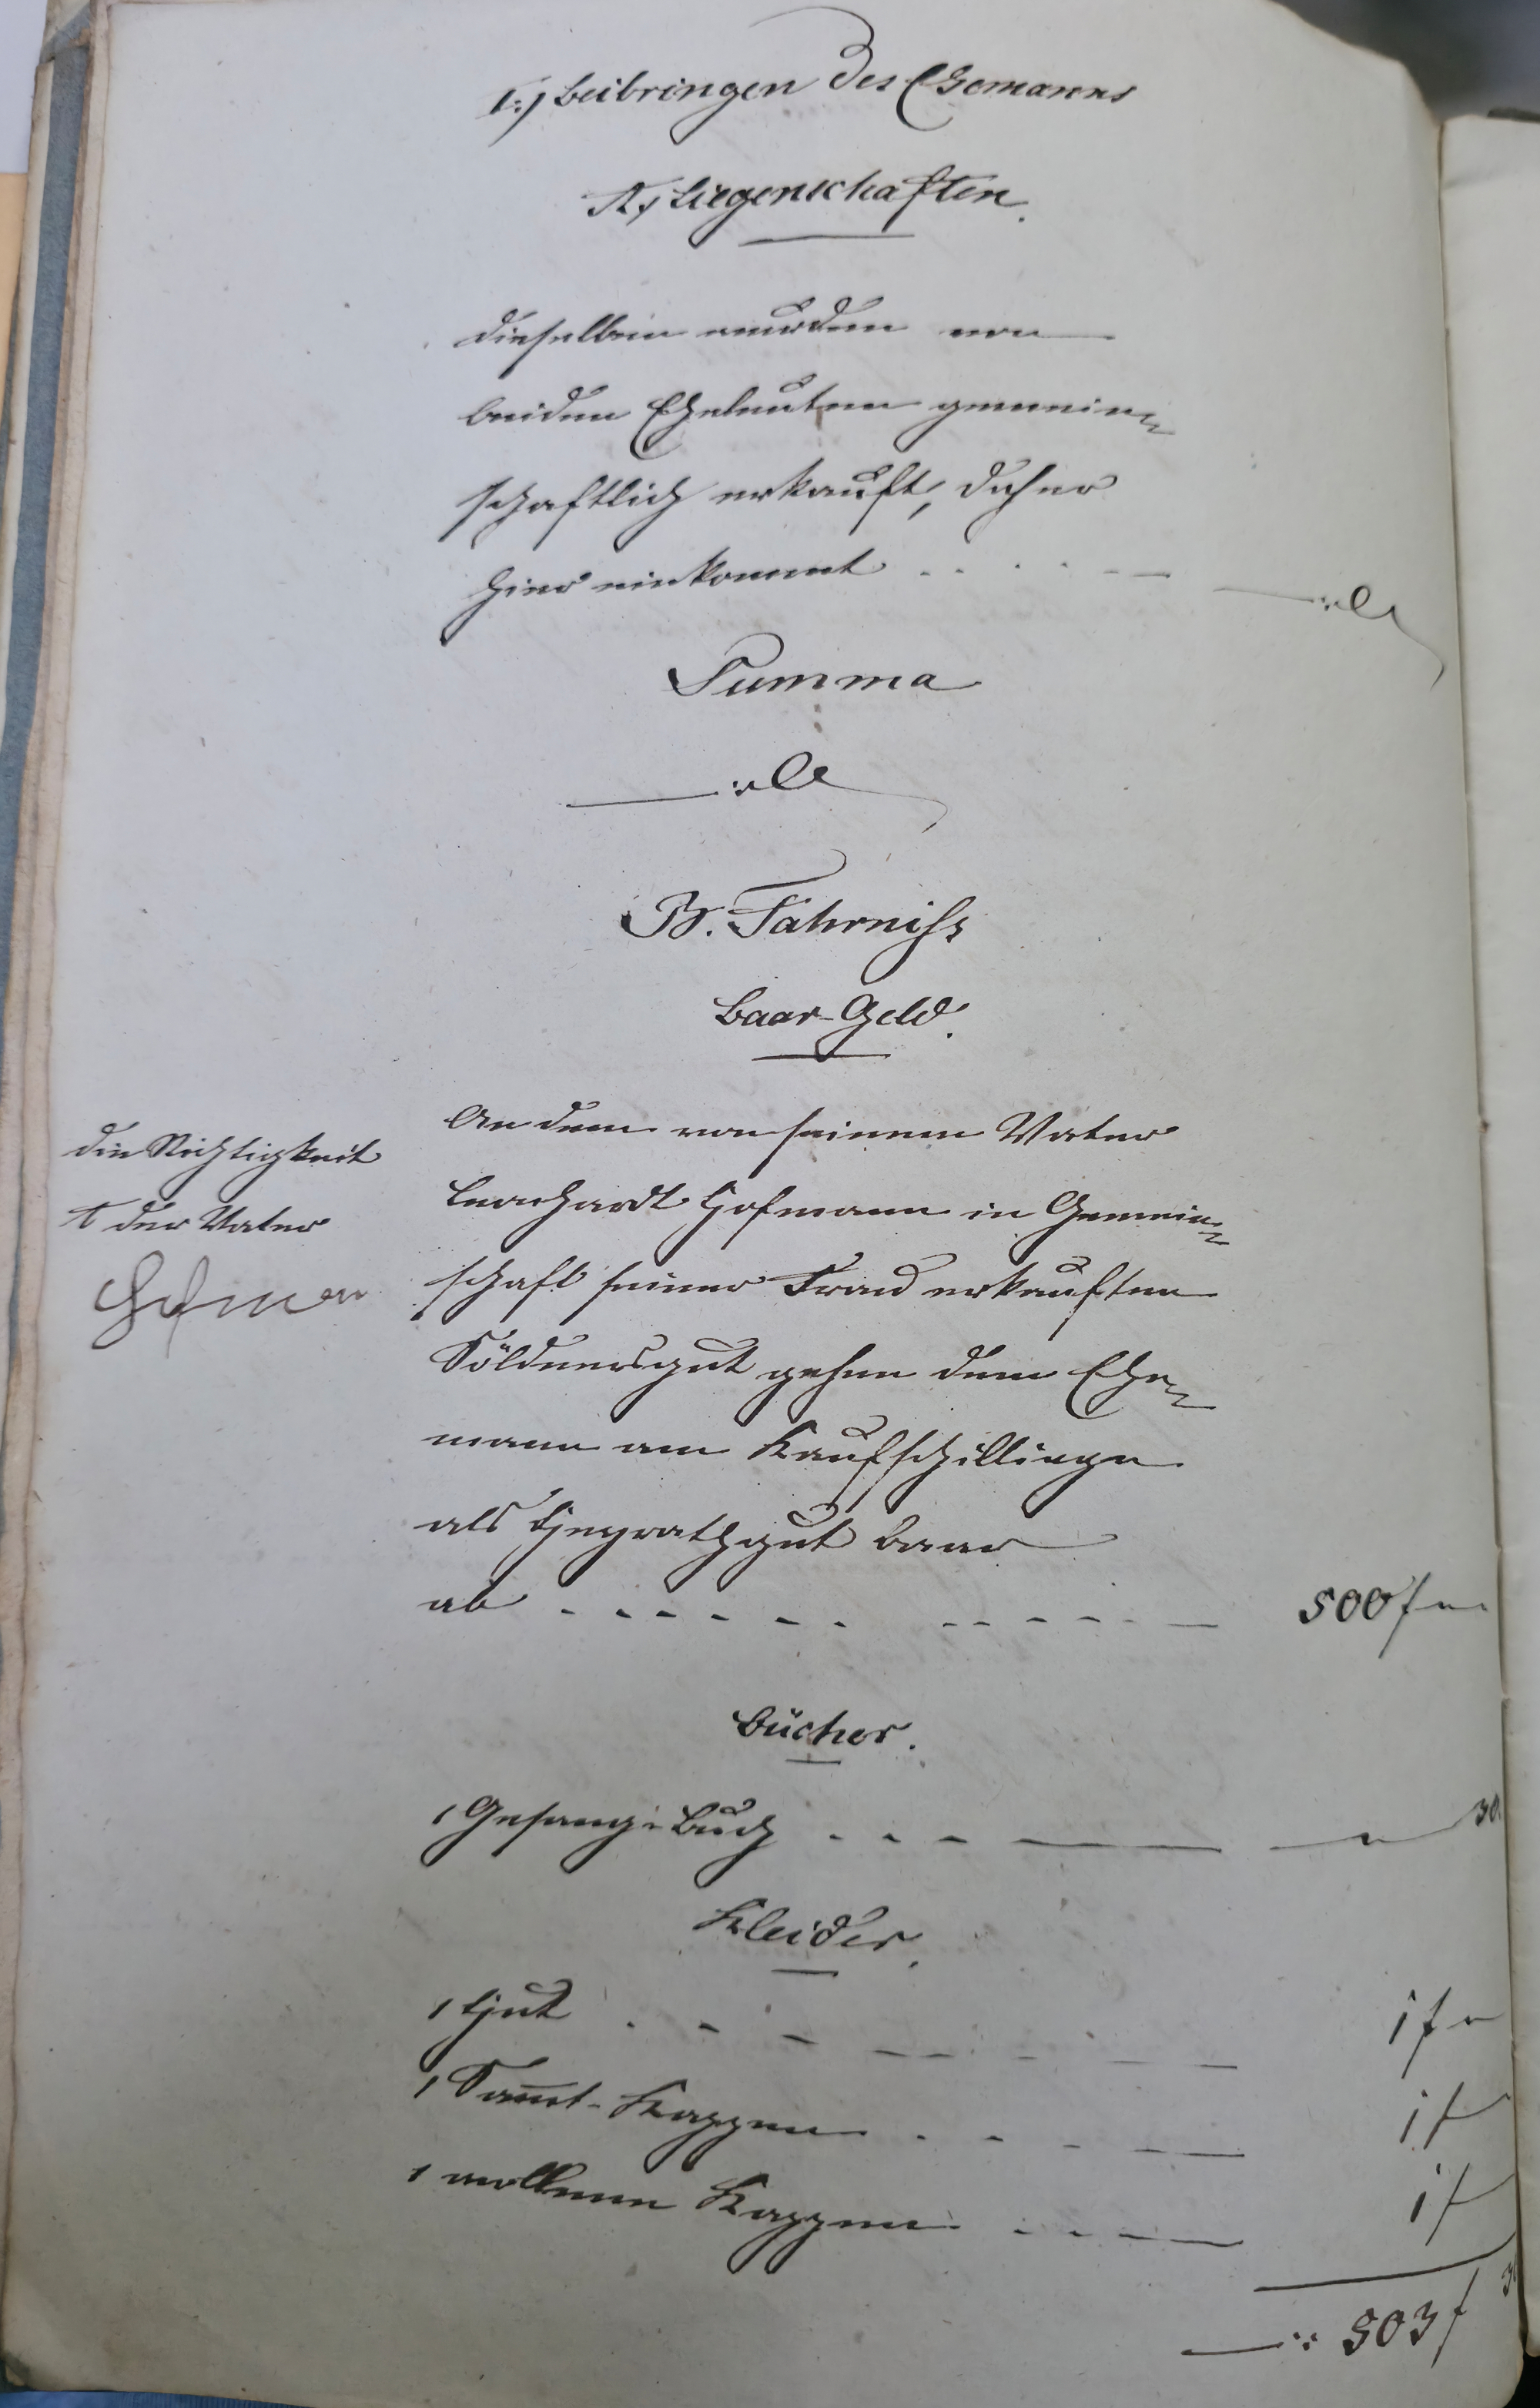 I., Beibringen des Ehemanns
A., Liegenschaften.
Dieselben wurden von
beiden Eheleuten gemein-
schaftlich erkauft, daher
hier einkommt . . . . . —
Summa
B. Fahrniß
Baar-Geld.
An dem von seinem Vater
Leonhardt Hofmann in Gemein-
schaft seiner Frau erkauften
Söldnersgut gehen dem Ehe-
mann am Kaufschillinge
als Heyrathgut baar
ab . . . . . . . . . . . 500 f —
die Richtigkeit
t der Vater
Hofman
Bücher.
1 Gesang-Buch . . . — — 30.
Kleider.
1 Hut . . . . . . . . 1 f —
1 Sam̅t-Kappen . . . . . 1 f
1 wollenen Kappen . . . . 1 f
—:: 503 f 3